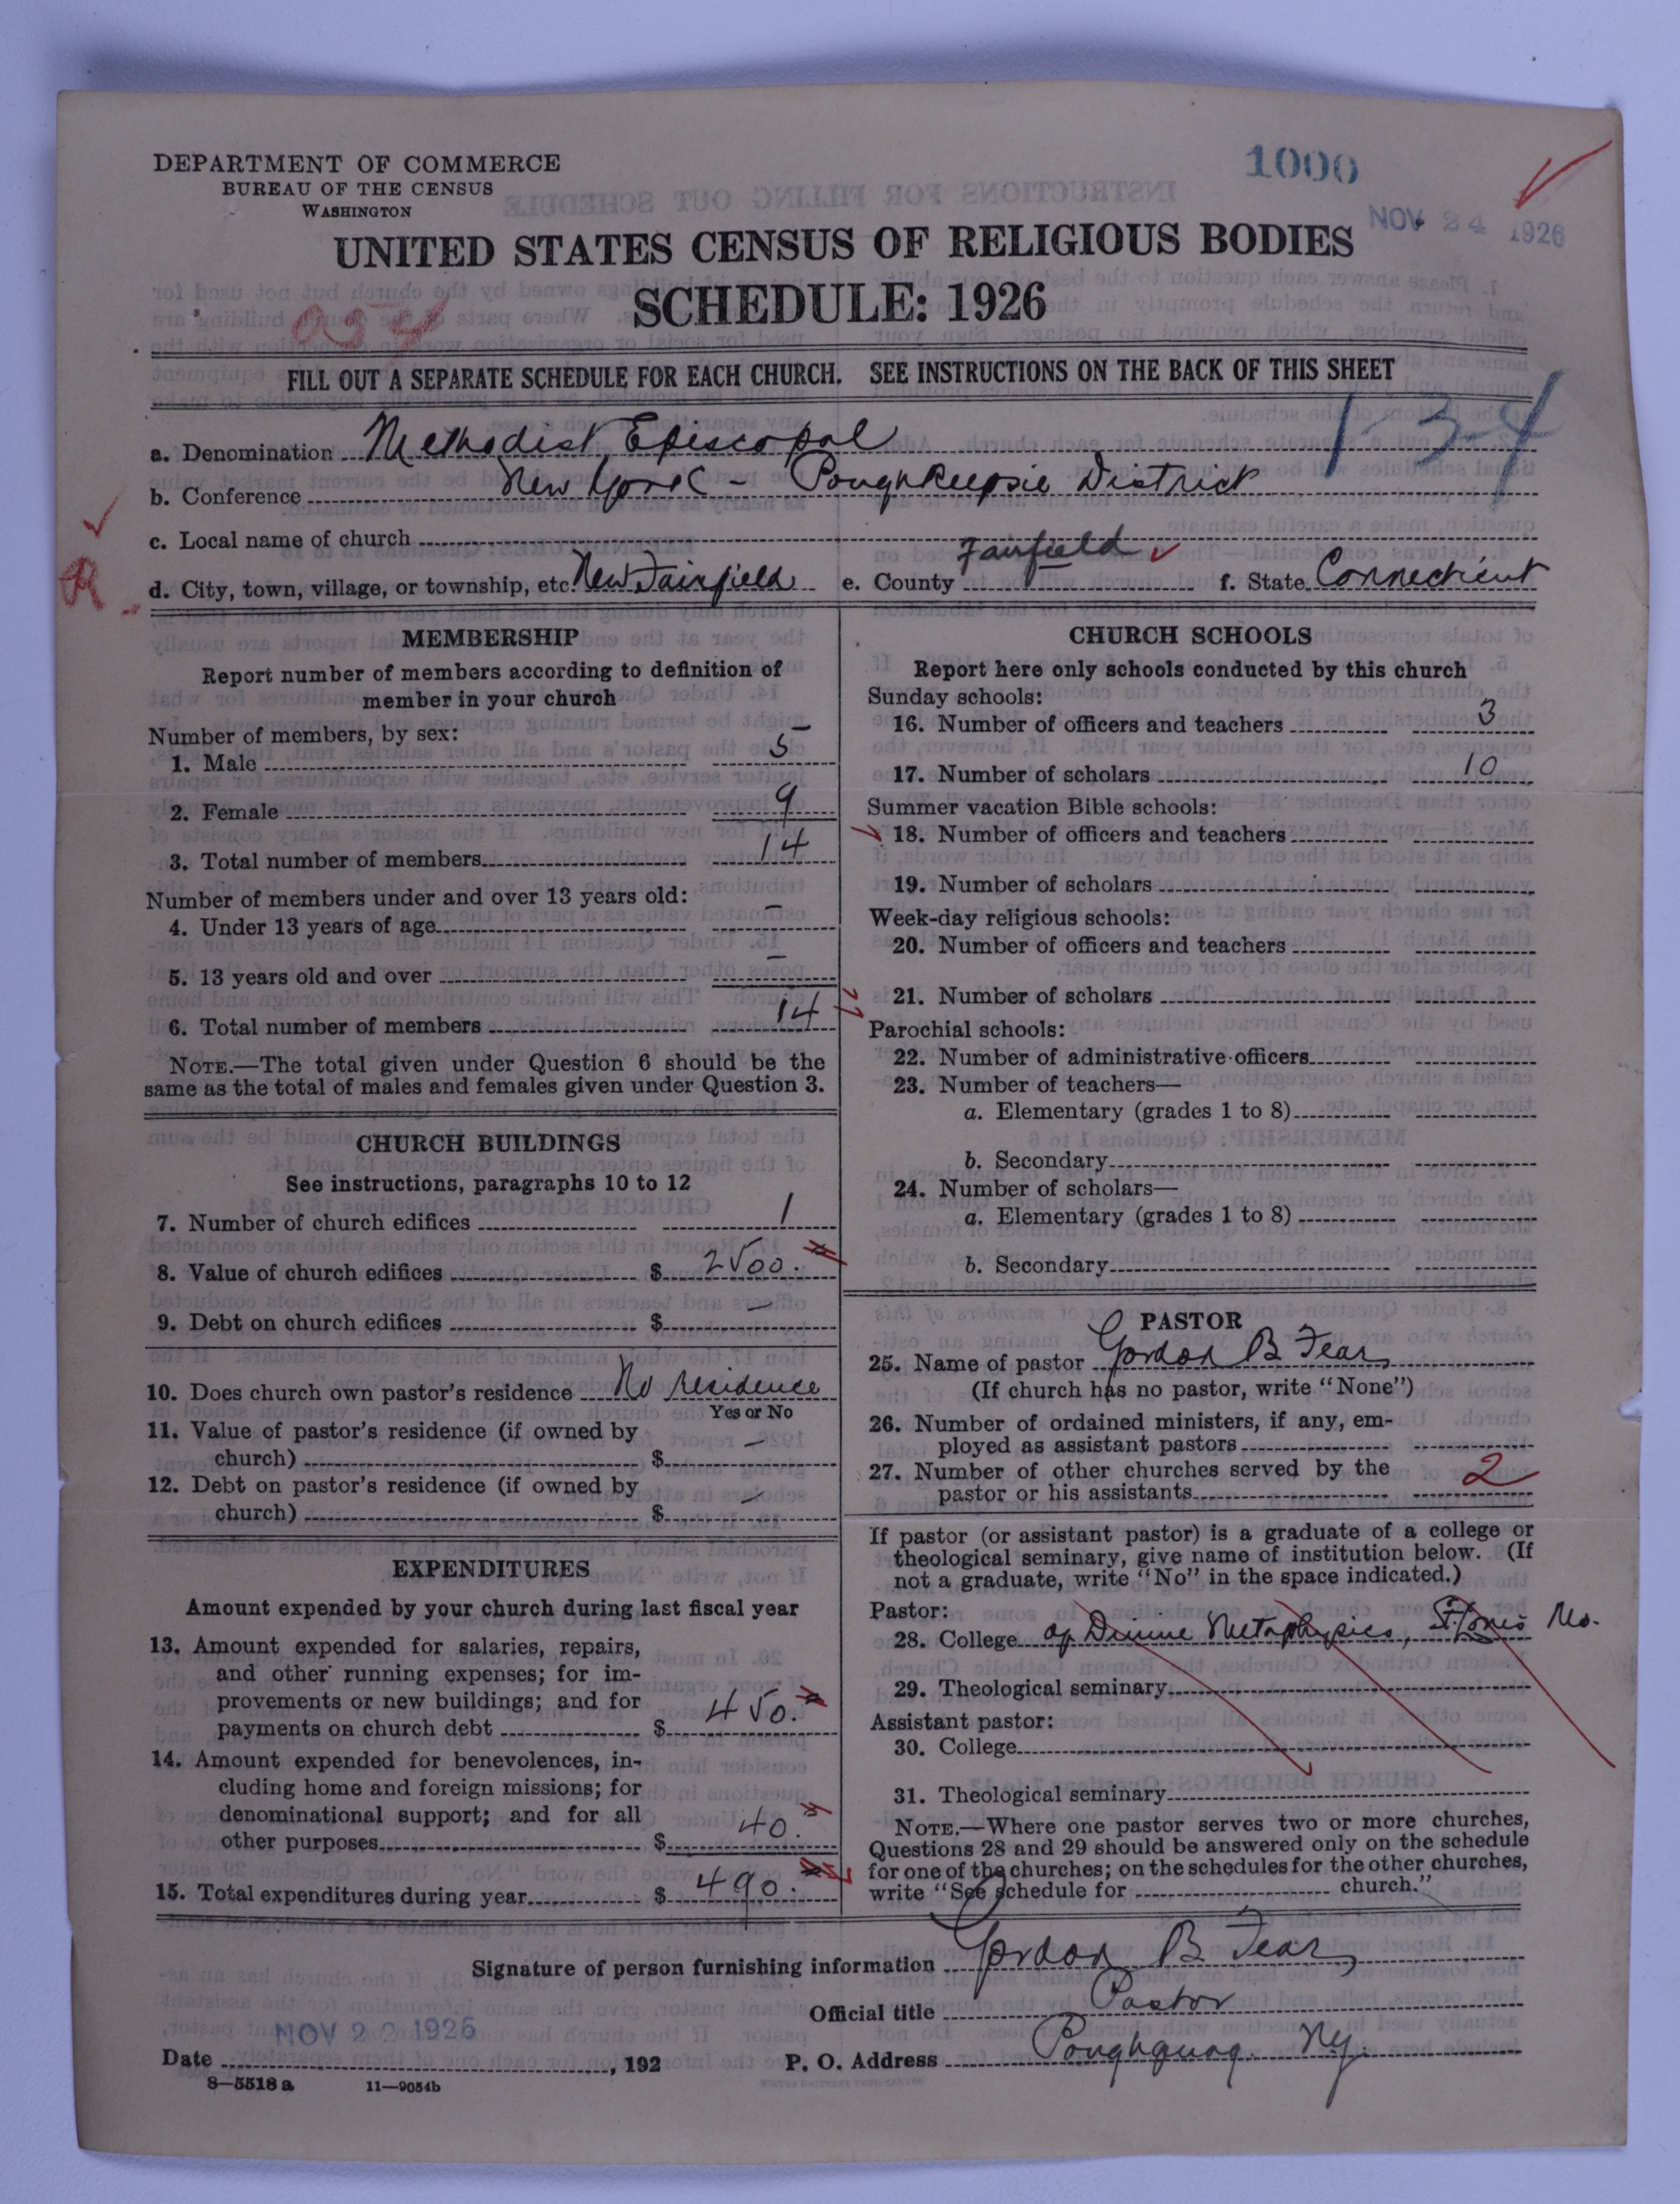 DEPARTMENT OF COMMERCE
BUREAU OF THE CENSUS
WASHINGTON
1000
NOV 24 1926
UNITED STATES CENSUS OF RELIGIOUS BODIES
SCHEDULE: 1926
054
FILL OUT A SEPARATE SCHEDULE FOR EACH CHURCH. SEE INSTRUCTIONS ON THE BACK OF THIS SHEET
1-3-4
a. Denomination Methodist Episcopal
b. Conference New York - Poughkeepsie District
c. Local name of church
R
d. City, town, village, or township, etc. New Fairfield e. County Fairfield f. State Connecticut
MEMBERSHIP
Report number of members according to definition of
member in your church
Number of members, by sex:
1. Male 5
2. Female 9
3. Total number of members 14
Number of members under and over 13 years old:
4. Under 13 years of age -
5. 13 years old and over -
6. Total number of members 14
NOTE.—The total given under Question 6 should be the
same as the total of males and females given under Question 3.
CHURCH BUILDINGS
See instructions, paragraphs 10 to 12
7. Number of church edifices 1
8. Value of church edifices $ 2500.
9. Debt on church edifices $ -
10. Does church own pastor's residence No residence
Yes or No
11. Value of pastor's residence (if owned by
church) $ -
12. Debt on pastor's residence (if owned by
church) $ -
EXPENDITURES
Amount expended by your church during last fiscal year
13. Amount expended for salaries, repairs,
and other running expenses; for im-
provements or new buildings; and for
payments on church debt $ 450.
14. Amount expended for benevolences, in-
cluding home and foreign missions; for
denominational support; and for all
other purposes $ 40.
15. Total expenditures during year $ 490.
CHURCH SCHOOLS
Report here only schools conducted by this church
Sunday schools:
16. Number of officers and teachers 3
17. Number of scholars 10
Summer vacation Bible schools:
18. Number of officers and teachers
19. Number of scholars
Week-day religious schools:
20. Number of officers and teachers
21. Number of scholars
Parochial schools:
22. Number of administrative officers
23. Number of teachers—
a. Elementary (grades 1 to 8)
b. Secondary
24. Number of scholars—
a. Elementary (grades 1 to 8)
b. Secondary
PASTOR
25. Name of pastor Gordon B Fear
(If church has no pastor, write "None")
26. Number of ordained ministers, if any, em-
ployed as assistant pastors
27. Number of other churches served by the
pastor or his assistants 2
If pastor (or assistant pastor) is a graduate of a college or
theological seminary, give name of institution below. (If
not a graduate, write "No" in the space indicated.)
Pastor:
28. College of Divine Metaphysics, St. Louis Mo.
29. Theological seminary
Assistant pastor:
30. College
31. Theological seminary
NOTE.—Where one pastor serves two or more churches,
Questions 28 and 29 should be answered only on the schedule
for one of the churches; on the schedules for the other churches,
write "See schedule for church."
Signature of person furnishing information Gordon B Fear
Official title Pastor
NOV 22 1926
Date , 192 P. O. Address Poughquag. Ny.
8—5518 a 11—9054b